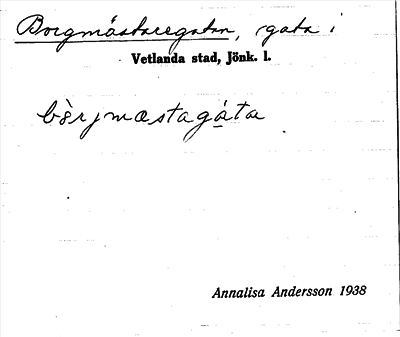 Borgmästaregatan, gata i
Vetlanda stad, Jönk. l.
bò̀rjmæstagáta
Annalisa Andersson 1938